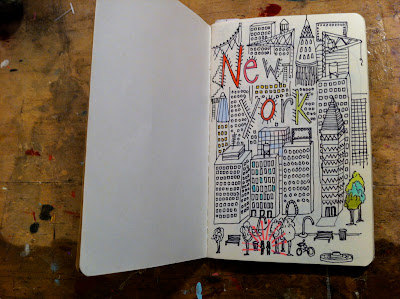 New
york